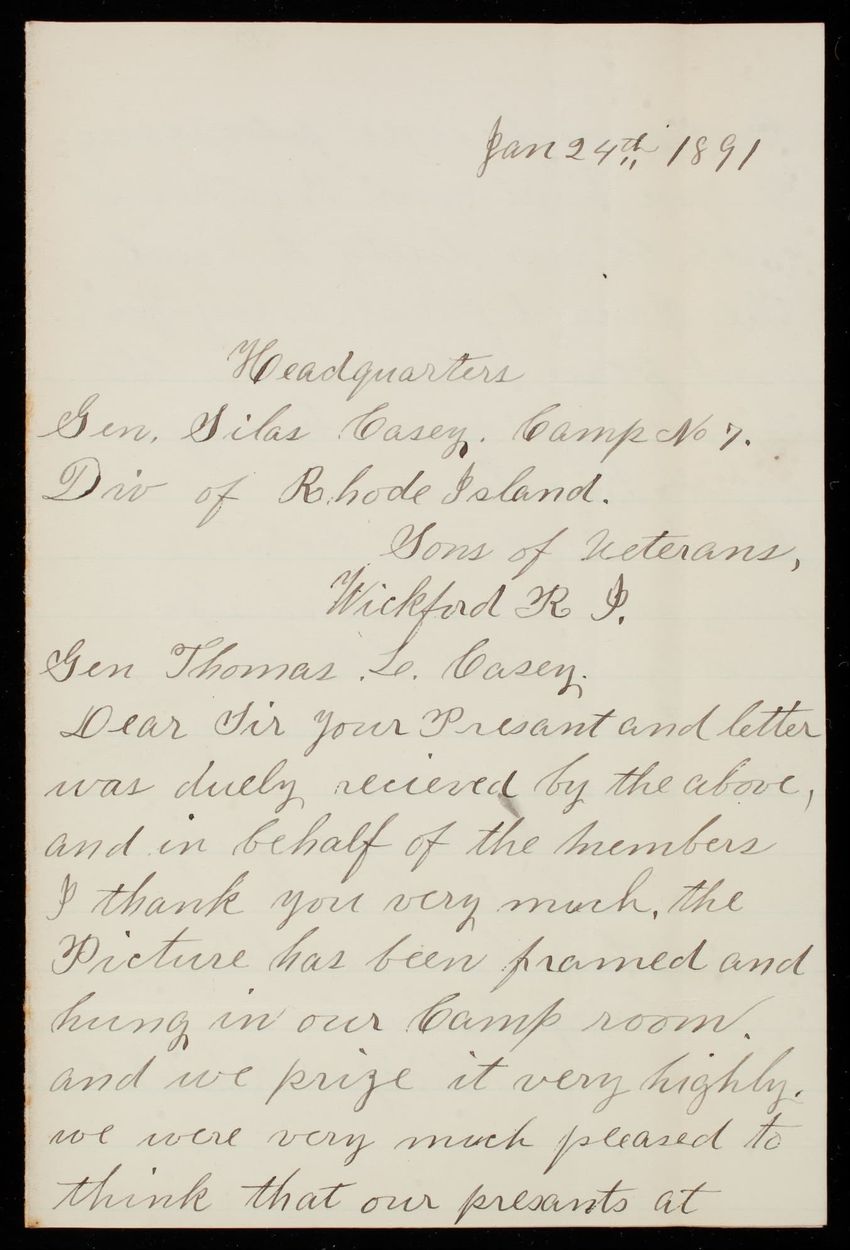 Jan 24th 1891
Headquarters
Gen. Silas Casey. Camp No 7.
Div of Rhode Island.
Sons of Veterans,
Wickford R I.
Gen Thomas L. Casey.
Dear Sir your Presant and letter
was duely recieved by the above,
and in behalf of the members
I thank you very much, the
Picture has been framed and
hung in our Camp room.
and we prize it very highly.
we were very much pleased to
think that our presants at